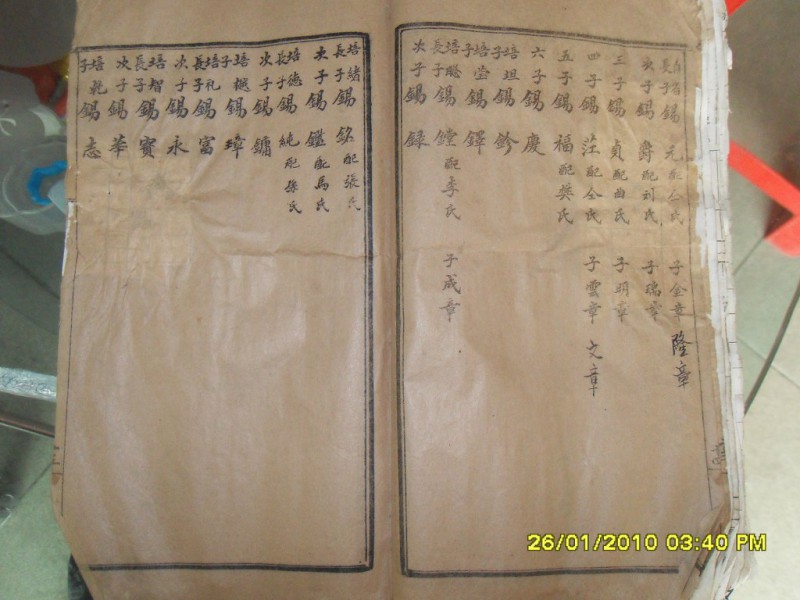 長子錫元配仝氏 子金章 隆章
次子錫爵配刘氏 子瑞章
三子錫貞配曲氏 子明章
四子錫茳配仝氏 子雲章 文章
五子錫福配樊氏
六子錫慶
培坦子錫鈐
培坣子錫鐸
培聪長子錫鏜配李氏 子成章
次子錫録
培緒長子錫銘配張氏
次子錫鑑配馬氏
培德長子錫純配孫氏
次子錫鏞
培子錫璋
培礼長子錫富
次子錫永
培智長子錫寳
次子錫華
培乾子錫志
26/01/2010 03:40 PM